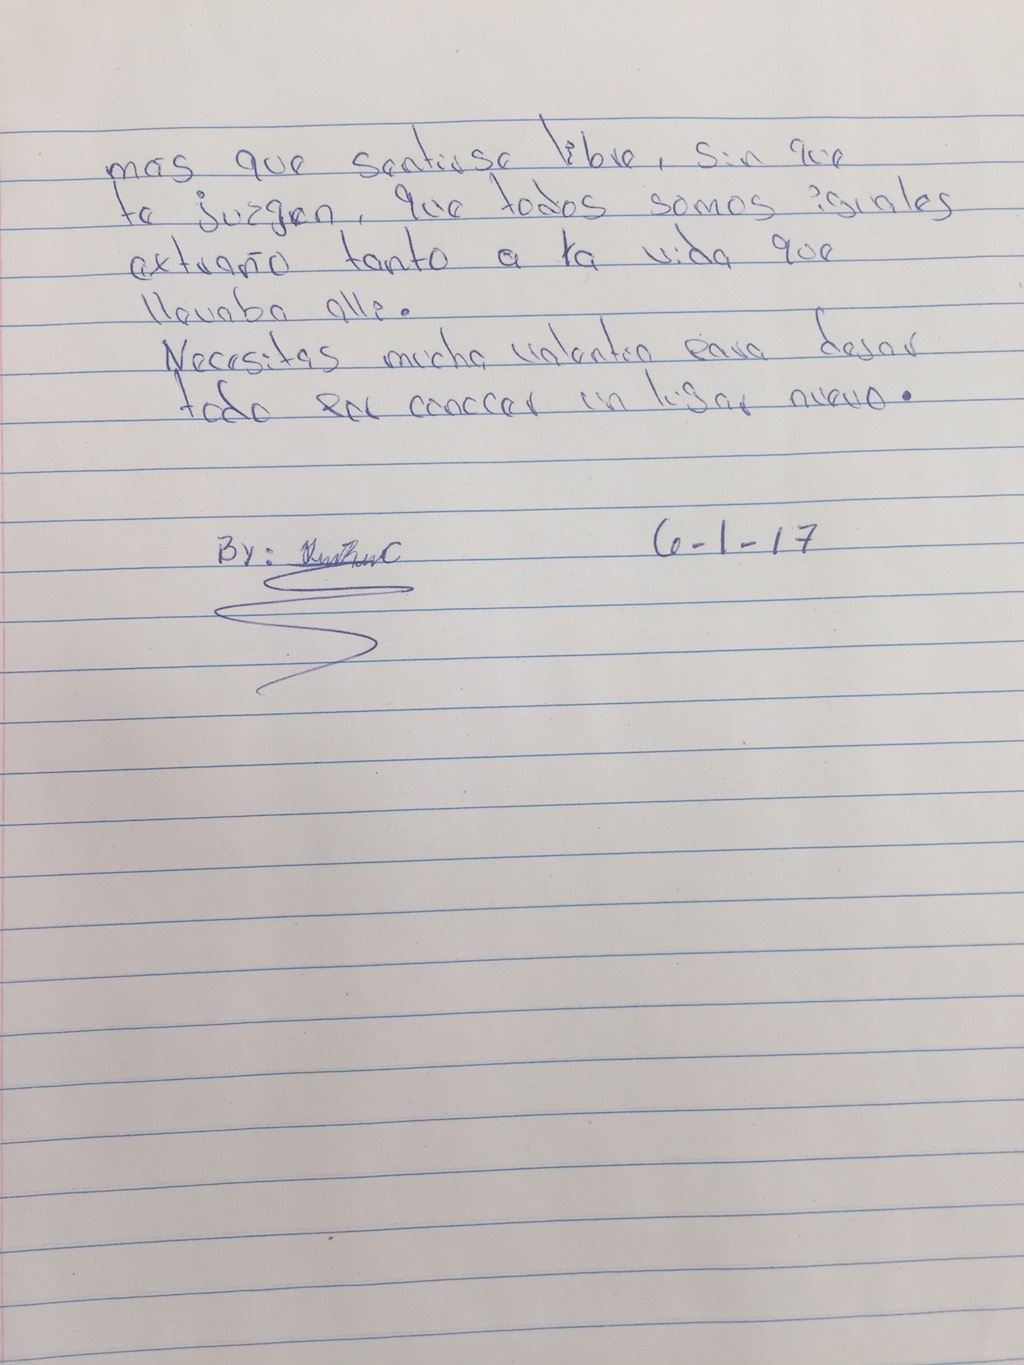 mas que sentirse libre, sin que
te juzgen, que todos somos iguales
extraño tanto a la vida que
llevaba alli.
Necesitas mucha valentia para dejar
todo por conocer un lugar nuevo.
By:
6-1-17